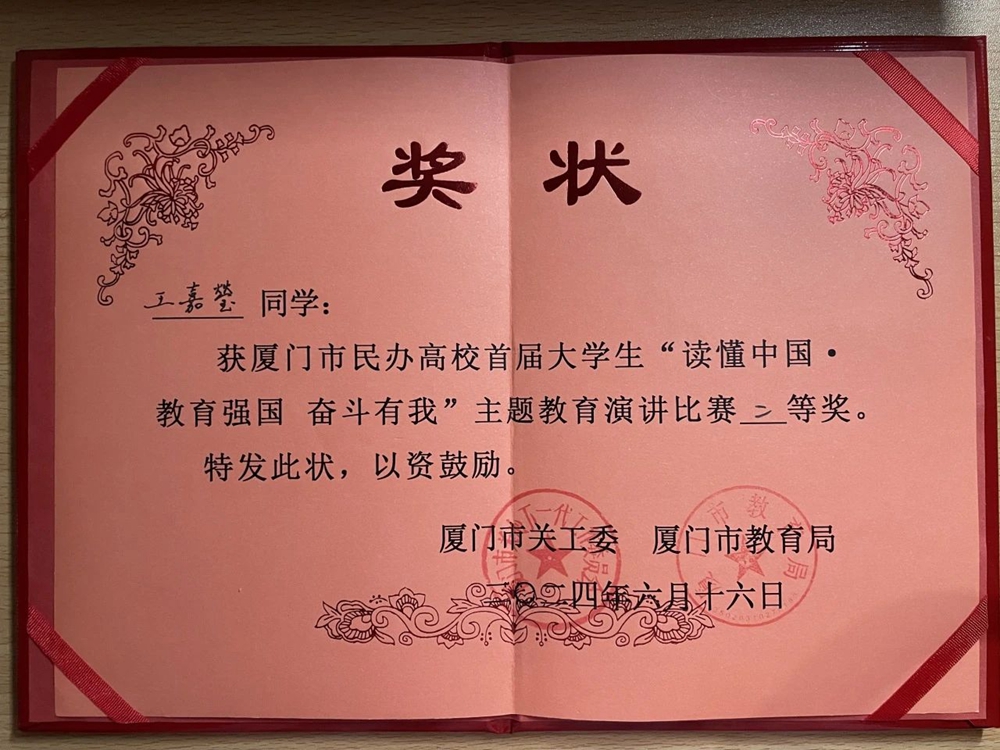 奖 状
王嘉莹 同学：
获厦门市民办高校首届大学生“读懂中国·
教育强国 奋斗有我”主题教育演讲比赛二等奖。
特发此状，以资鼓励。
厦门市关工委 厦门市教育局
二〇二四年六月十六日